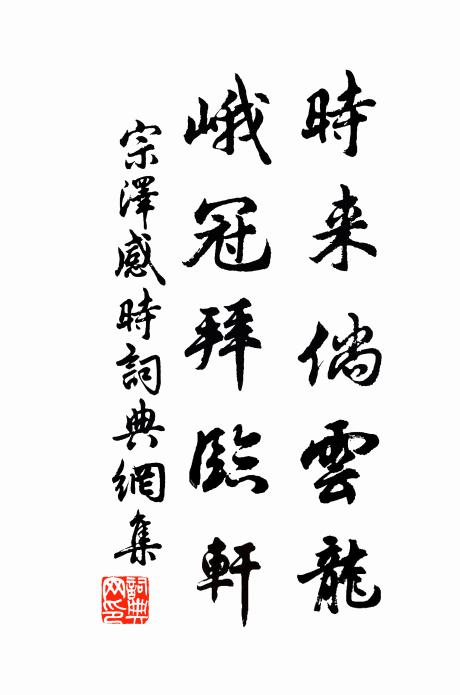 時来倘雲龍
峨冠拜臨軒
宗澤感時詞典網集
詞典网印